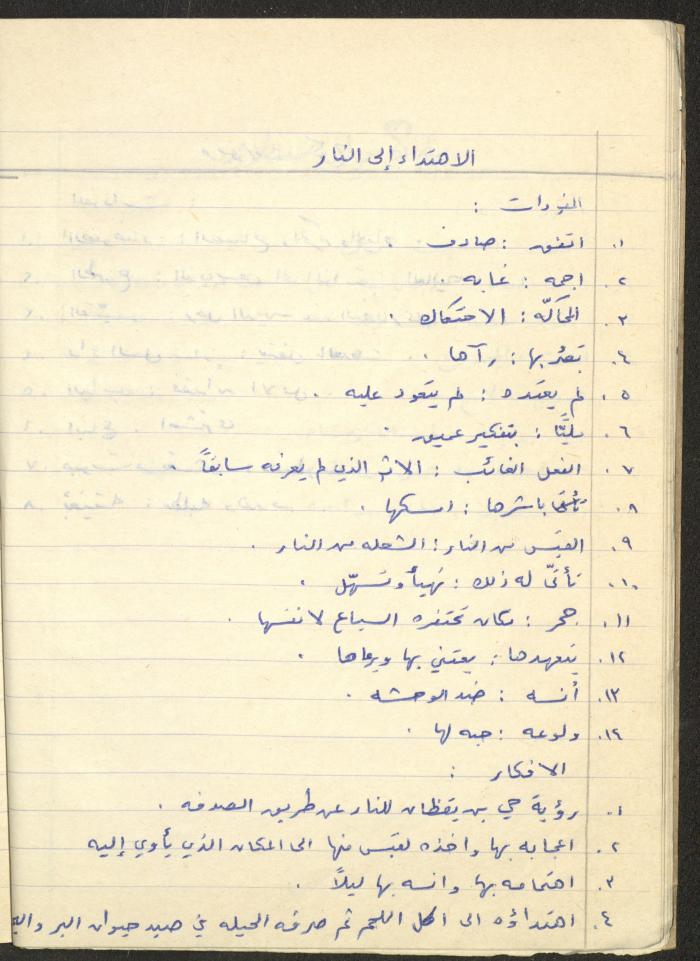 الاهتداء إلى النار
المفردات :
١. اتفق : صادف .
٢. اجمه : غابه .
٣. المحاكّه : الاحتكاك .
٤. بَصُر بها : رآها .
٥. لم يعتده : لم يتعود عليه .
٦. مليًّا : بتفكير عميق .
٧. الفعل الغائب : الاثر الذي لم يعرفه سابقاً
٨. باشرها : امسكها .
٩. القبَس من النار : الشعله من النار .
١٠. تأتّى له ذلك : تهيأ وتسهّل .
١١. جحر : مكان تحتفره السباع لانفسها .
١٢. يتعهدها : يعتني بها ويرعاها .
١٣. أنسه : ضد الوحشه .
١٤. ولوعه : حبه لها .
الافكار :
١. رؤية حي بن يقظان للنار عن طريق الصدفه .
٢. اعجابه بها واخذه لقبَس منها الى المكان الذي يأوي إليه
٣. اهتمامه بها وانسه بها ليلاً .
٤. اهتداؤه الى اكل اللحم ثم صرفه الحيله في صيد حيوان البر